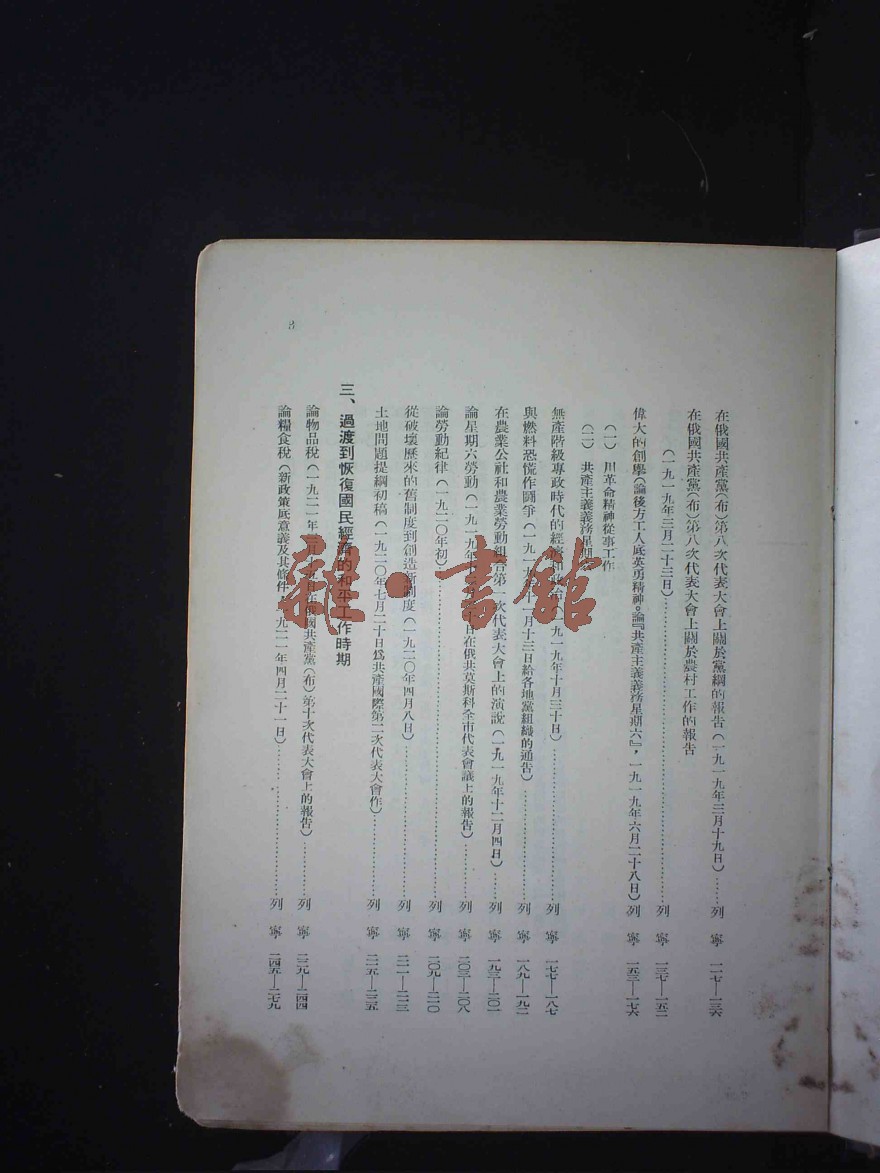 在俄國共產黨(布)第八次代表大會上關於黨綱的報告(一九一九年三月十九日)……列 寧 一一七—一三六
在俄國共產黨(布)第八次代表大會上關於農村工作的報告
(一九一九年三月二十三日)……列 寧 一三七—一五二
偉大的創舉(論後方工人底英勇精神。論『共產主義義務星期六』,一九一九年六月二十八日)列 寧 一五三—一七六
(一) 用革命精神從事工作
(二) 共產主義義務星期
無產階級專政時代的經濟和政治(一九一九年十月三十日)……列 寧 一七七—一八七
與燃料恐慌作鬪爭(一九一九 一月十三日給各地黨組織的通告)……列 寧 一八九—一九二
在農業公社和農業勞動組合第一次代表大會上的演說(一九一九年十二月四日)……列 寧 一九三—二〇一
論星期六勞動(一九一九年 十日在俄共莫斯科全市代表會議上的報告)……列 寧 二〇三—二〇八
論勞動紀律(一九二〇年初)……列 寧 二〇九—二一〇
從破壞歷來的舊制度到創造新制度(一九二〇年四月八日)……列 寧 二一一—二一三
土地問題提綱初稿(一九二〇年七月二十日爲共產國際第二次代表大會作)……列 寧 二一五—二二五
三、過渡到恢復國民經濟的和平工作時期
論物品稅(一九二一年三月十五日在俄國共產黨(布)第十次代表大會上的報告)……列 寧 二二九—二四四
論糧食稅(新政策底意義及其條件 一九二一年四月二十一日)……列 寧 二四五—二七九
3
雜·書館